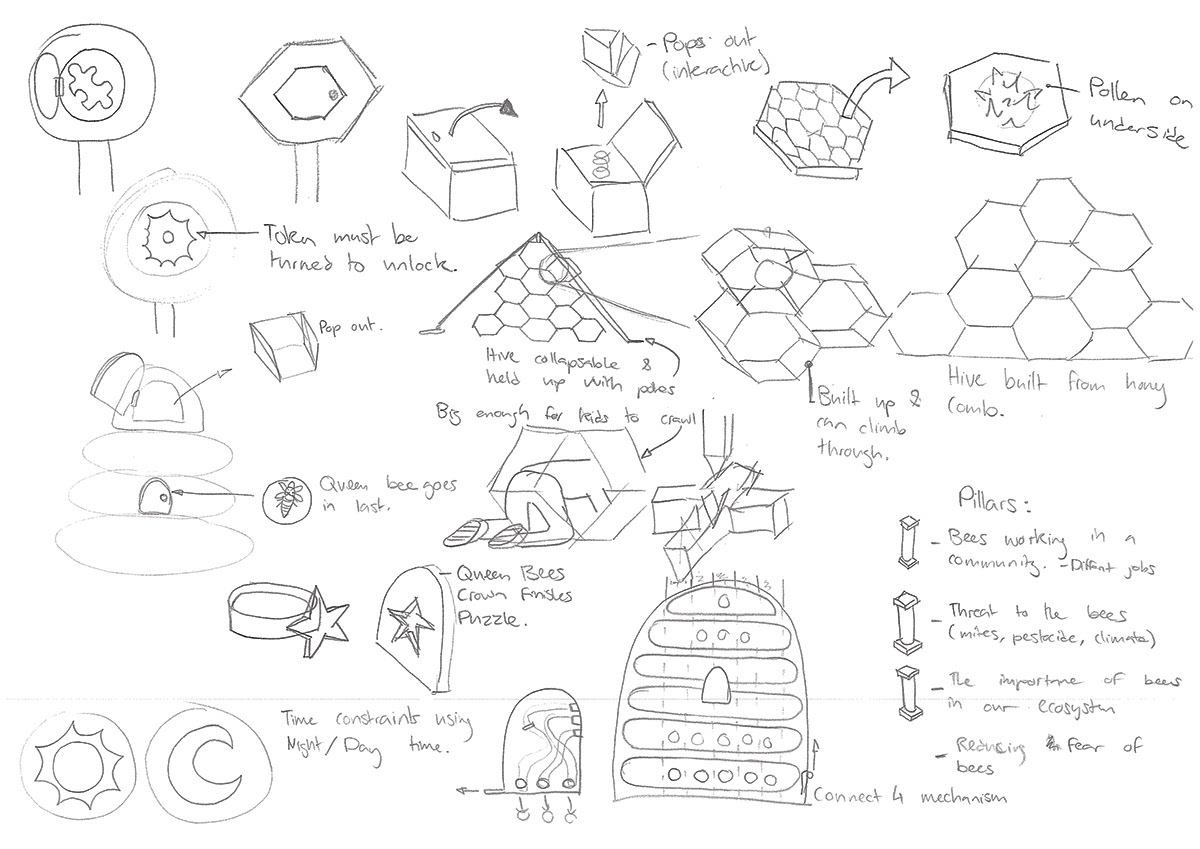 - Pops out
(interactive)
Pollen on
underside
Token must be
turned to unlock.
Pop out.
Hive collapsable &
held up with poles
Built up &
can climb
through.
Hive built from hony
comb.
Big enough for kids to crawl
Queen bee goes
in last.
Queen Bees
Crown finishes
Puzzle.
Pillars:
- Bees working in a
community. - Diffant jobs
- Threat to the bees
(mites, pestocide, climate)
- The importane of bees
in our ecosystem
- Reducing fear of
bees
Time constraints using
Night/Day time.
Connect 4 mechanism